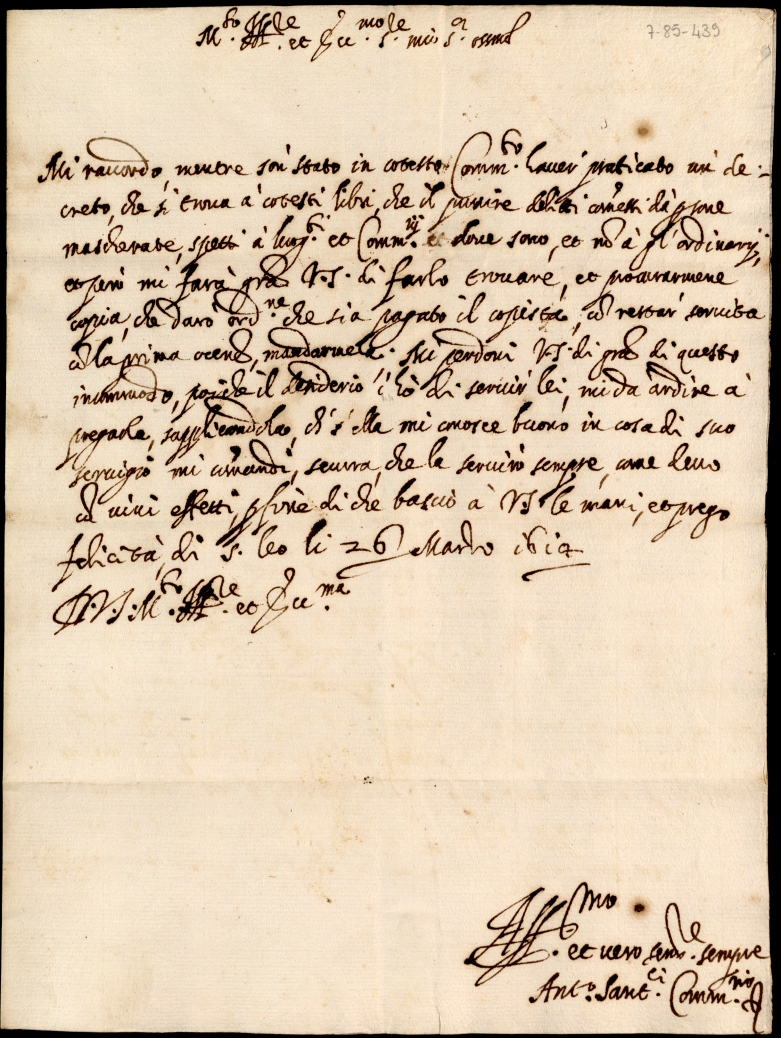 7-85-439
M.to Ill.re et Ecc.mo s.re mio s.r oss.mo
Mi raccordo, mentre son stato in cotesto Comm.to haver praticato un' de-
creto, che si trova à cotesti libri, che il punire delitti comessi da psone
mascherate, spetti à luog.ti et Comm.rij dove sono, et nõ à gl'ordinarij,
et però mi farà grã V.S. di farlo trovare, et procurarmene
copia, che darò ord.ne che sia pagato il copista, cõ restar' servita
cõ la prima occẽ mandarmela. Mi perdoni V.S. di grã di questo
incommodo, poiche il desiderio c'hò di servir' lei, mi da ardire à
pregarla, supplicandola, ch' s'ella mi conosce buono in cosa di suo
servigio mi comandi, sicura, che la servirò sempre, come devo
cõ vivi effetti, p fine di che bascio à V.S. le mani, et prego
felicità, di S. leo li 26 Marzo 1614
D.V.S. M.to Ill.re et Ecc.ma
Aff.mo
et vero ser.re sempre
Ant.o Sant.ci Comm.rio